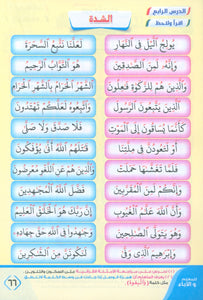 الدرس الرابع
اقرأ ولاحظ
الشدة
يُولِجُ ٱلَّيْلَ فِي ٱلنَّهَارِ
لَعَلَّنَا نَتَّبِعُ ٱلسَّحَرَةَ
وَإِنَّهُۥ لَمِنَ ٱلصَّٰدِقِينَ
هُوَ ٱلتَّوَّابُ ٱلرَّحِيمُ
وَٱلَّذِينَ هُمْ لِلزَّكَوٰةِ
ٱلشَّهْرُ ٱلْحَرَامُ بِٱلشَّهْرِ ٱلْحَرَامِ
وَٱلَّذِينَ يَتَّبِعُونَ ٱلرَّسُولَ
وَٱتَّبِعُوهُ لَعَلَّكُمْ تَهْتَدُونَ
كَأَنَّمَا يُسَاقُونَ إِلَى ٱلْمَوْتِ
فَلَا صَدَّقَ وَلَا صَلَّىٰ
أَوْ لَتَعُودُنَّ فِي مِلَّتِنَا
قَٰتَلَهُمُ ٱللَّهُ أَنَّىٰ يُؤْفَكُونَ
فَلَمَّا تَغَشَّىٰهَا حَمَلَتْ
وَٱلَّذِينَ هُمْ عَنِ ٱللَّغْوِ مُعْرِضُونَ
وَإِنَّكُمْ لَمِنَ ٱلْمُقَرَّبِينَ
فَضَّلَ ٱللَّهُ ٱلْمُجَٰهِدِينَ
وَأَنَّ ٱللَّهَ عَلَّٰمُ ٱلْغُيُوبِ
إِنَّ رَبَّكَ هُوَ ٱلْخَلَّٰقُ ٱلْعَلِيمُ
وَهُوَ يَتَوَلَّى ٱلصَّٰلِحِينَ
وَجَٰهِدُوا۟ فِي ٱللَّهِ حَقَّ جِهَادِهِۦ
وَإِبْرَٰهِيمَ ٱلَّذِي وَفَّىٰٓ
لَنَكُونَنَّ مِنَ ٱلشَّٰكِرِينَ
٦٦